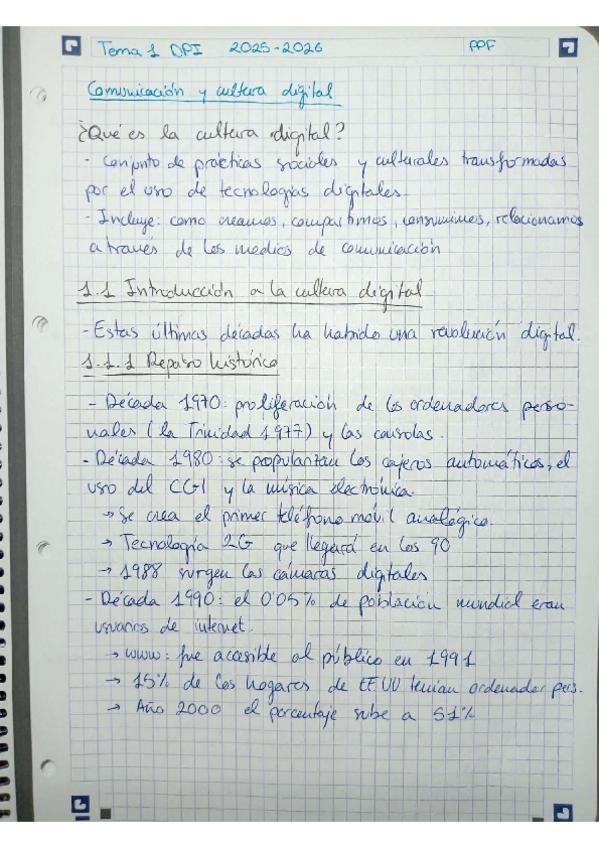 Tema 1 DPI 2025-2026 PPF
Comunicación y cultura digital
¿Qué es la cultura digital?
- Conjunto de prácticas sociales y culturales transformadas
por el uso de tecnologías digitales.
- Incluye: como creamos, compartimos, consumimos, relacionamos
a través de los medios de comunicación
1.1 Introducción a la cultura digital
- Estas últimas décadas ha habido una revolución digital.
1.1.1 Repaso histórico
- Década 1970: proliferación de los ordenadores perso-
nales (la Trinidad 1977) y las consolas.
- Década 1980: se popularizan los cajeros automáticos, el
uso del CGI y la música electrónica.
→ Se crea el primer teléfono móvil analógico.
→ Tecnología 2G que llegará en los 90
→ 1988 surgen las cámaras digitales
- Década 1990: el 0'05% de población mundial eran
usuarios de internet.
→ www: fue accesible al público en 1991
→ 15% de los hogares de EE.UU tenían ordenador pers.
→ Año 2000 el porcentaje sube a 51%